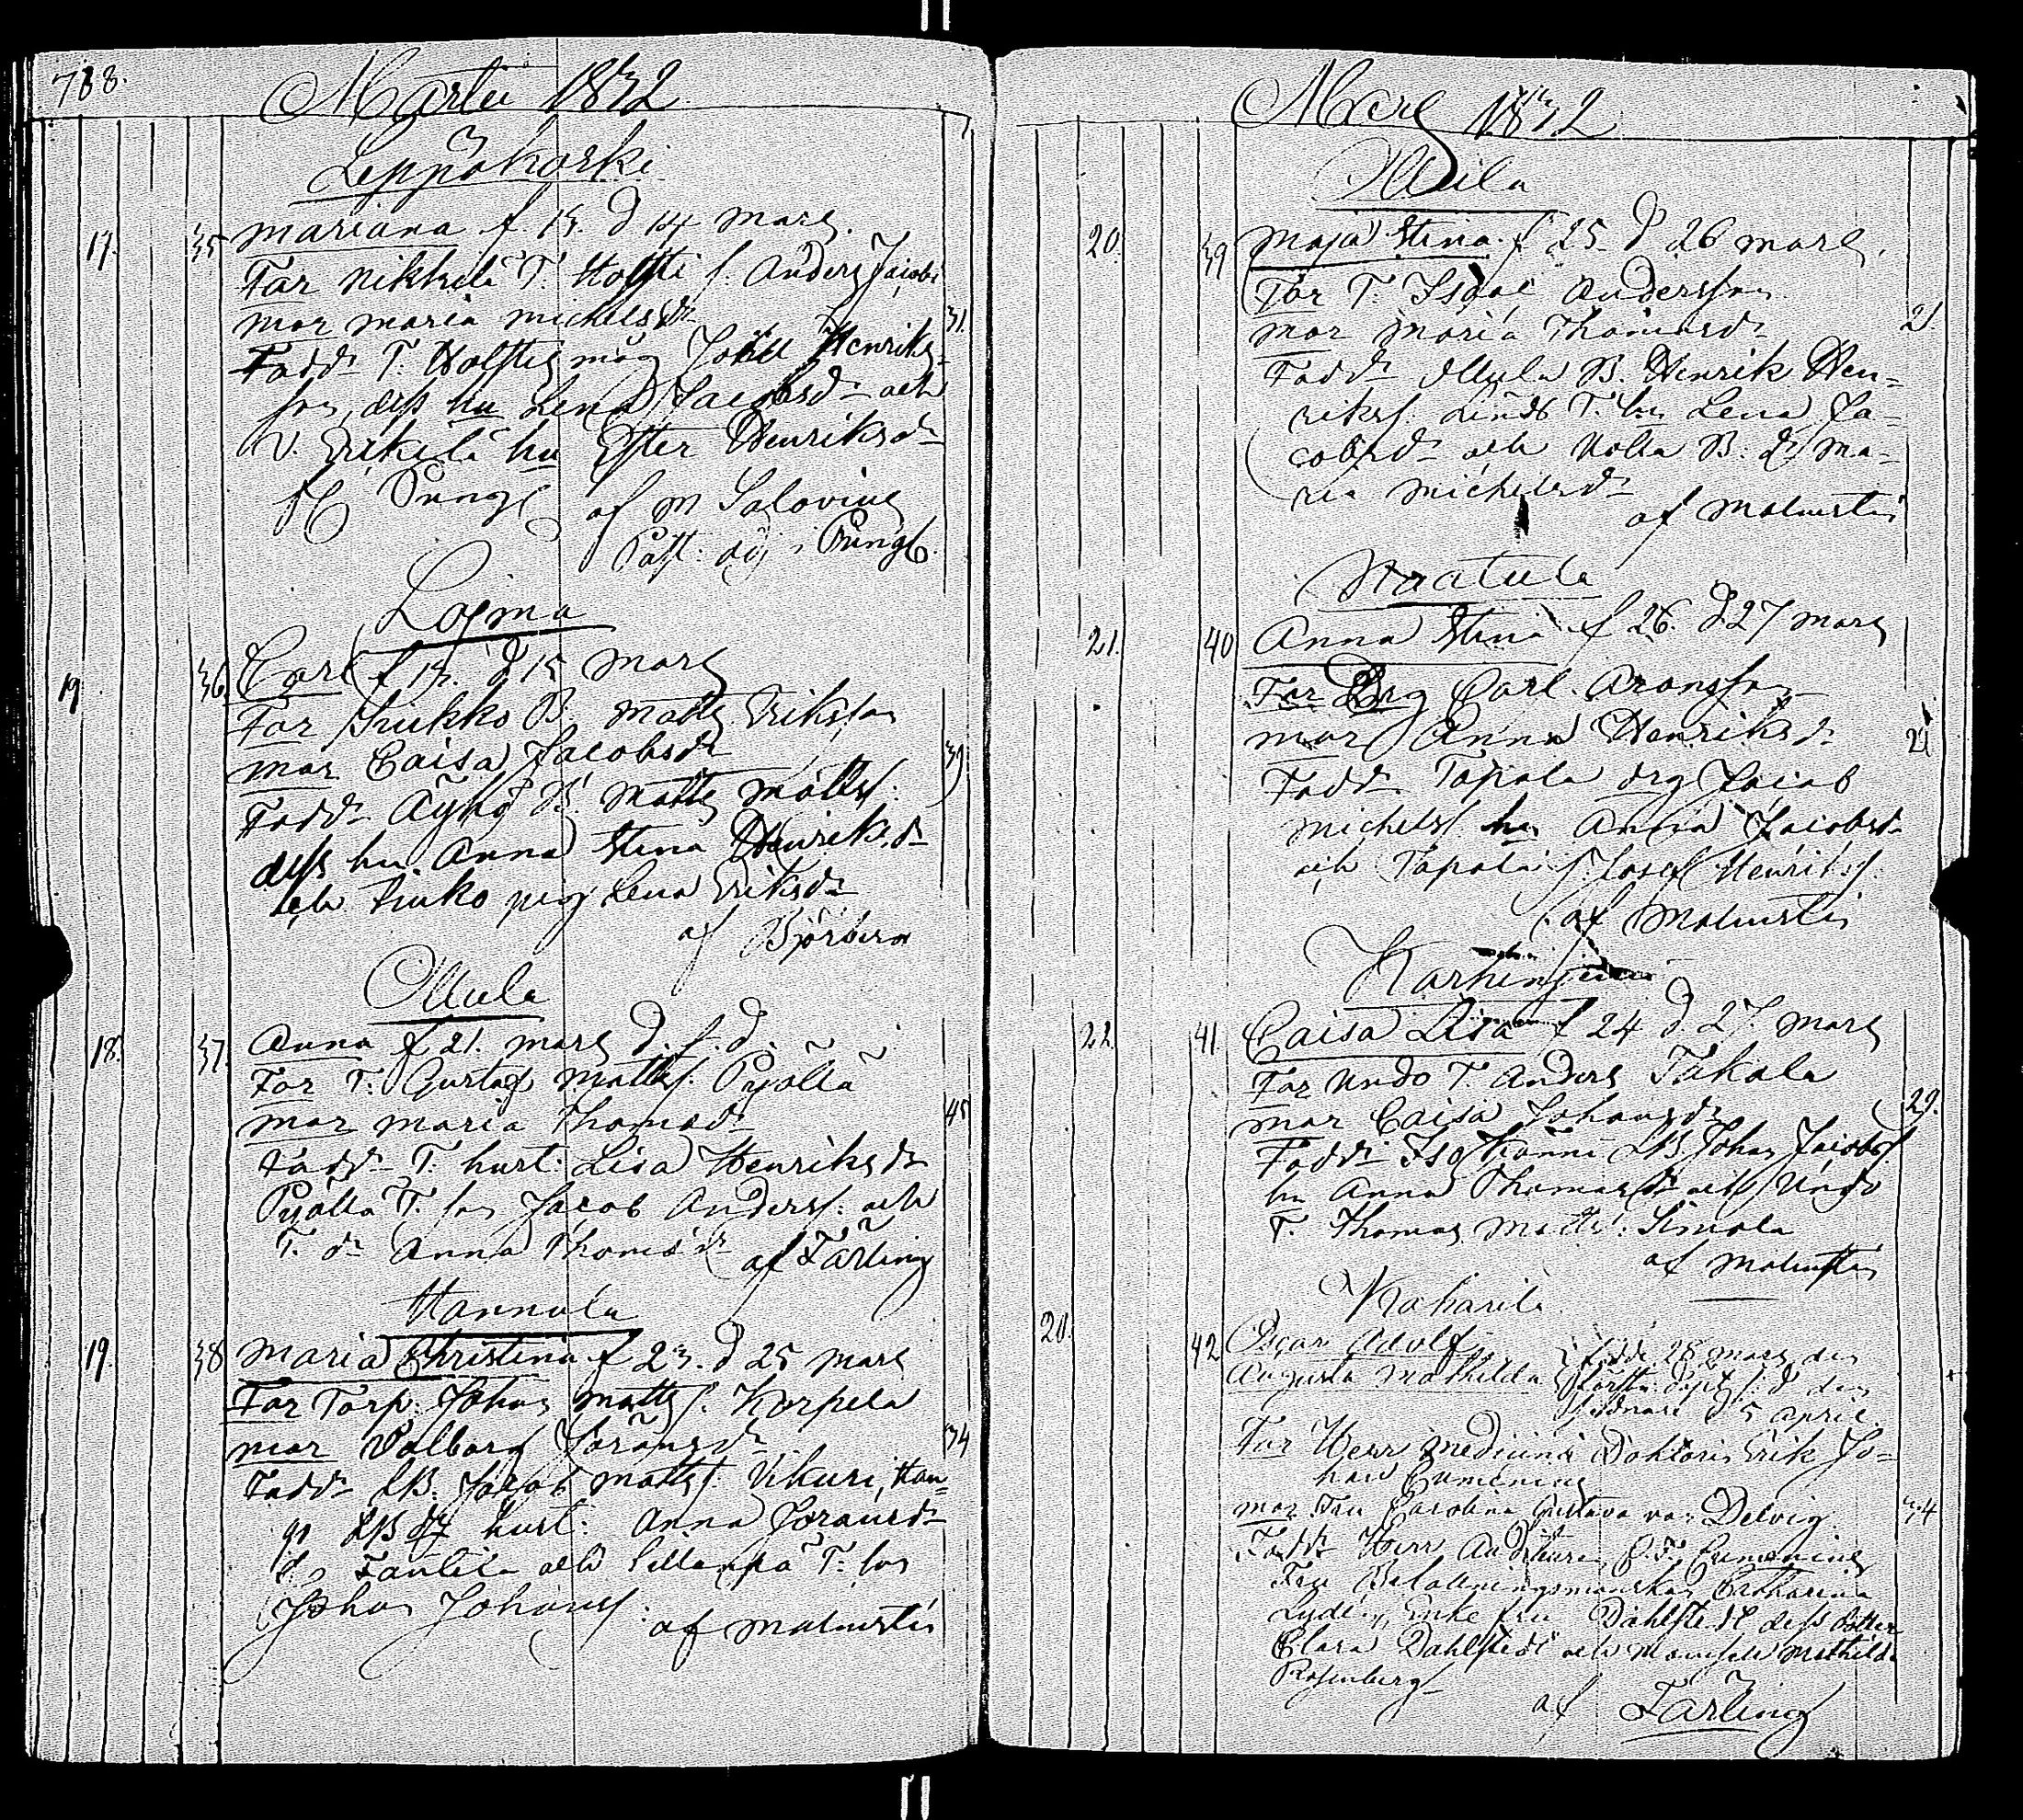 788.
Martii 1832
Leppäkorki
17. 35 Mariana f. 13. d 14 Mars.
Far Nikkilä T. Holsti s. Anders Jacobs
Mor Maria Michelsdr 31.
Fadd. T. Holstis måg Johan Henriks-
son, dess hu Lena Jacobsdr och
V. Erkilä hu Ester Henriksdr
af M Salovius
Past. adj i Pungb.
Lojma
19 36. Carl f 13. d 15 Mars
Far Trukko B. Matts Eriksson
Mor Caisa Jacobsdr 39
Fadd. Äyhö B. Matts Mattss.
dess hu Anna Stina Henriksdr
och pig Lena Eriksdr
af Björberg
Ollula
18. 37. Anna f 21. Mars d. s. d.
Far T. Gustaf Mattss. Pyöllä
Mor Maria Thomasdr 45
Fadd. T. hust: Lisa Henriksdr
Pyölla T. son Jacob Anderss: och
T. dr Anna Thomasdr af Färling
Hannula
19. 38 Maria Christina f 23. d 25 Mars
Far Torp. Johan Mattss. Korpela
Mor Valborg Göransdr 34
Fadd. LB. Jacob Mattss. Vikuri, Kan-
gs LB hust: Anna Göransdr
Fäntilä och Sillanpä T. son
Johan Johanss: af Malmstén
Mars 1832
Ollila
20. 39 Maja Stina f 25 d 26 Mars.
Far T. Isaac Andersson
Mor Maria Thomasdr 21.
Fadd. Ollula B. Henrik Hen-
rikss. T. hu Lena Ja-
cobsdr och Nolla B: dr Ma-
ria Michelsdr
af Malmstén
Noatula
21. 40 Anna Stina f 26. d 27 Mars
Far Drg Carl Aronsson
Mor Anna Henriksdr 21
Fadd. Tapola drg Jacob
Michelss hu Anna Jacobsdr
och Tapola s. Josef Henrikss.
af Malmstén
Karhenjuua
22. 41 Caisa Lisa f 24 d. 27. Mars
Far Undo T. Anders Takala
Mor Caisa Johansdr 29.
Fadd. Iso Kanni LB Johan Jacobss.
hu Anna Thomasdr och Undo
T. Thomas Mattss: Simola
af Malmstén
Kaharila
20. 42 Oscar Adolf
Augusta Mathilda födde 28 Mars den
förstn. döpt s. d den
sednare d 5 April.
Far Herr Medicinæ Doktorn Erik Jo-
han Cumenius
Mor Fru Carolina Gustava von Delvig 34
Fadd. Herr Auditeuren Cumenius
Fru Befallningsmanskan Catharina
Lydén, Enke fru Dahlstedt dess dotter
Clara Dahlstedt och Mamsell Mathilda
Rosenberg
af Färling